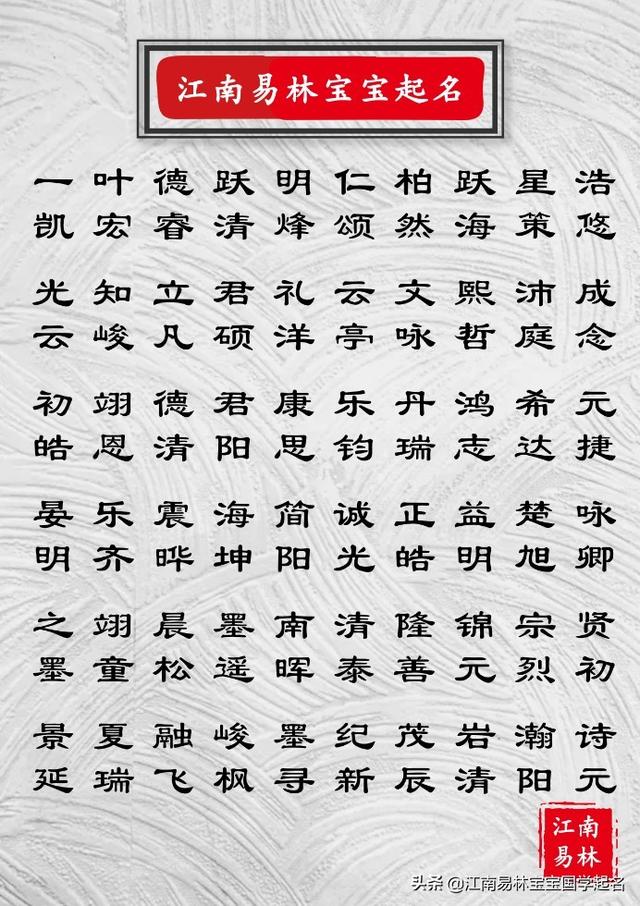 江南易林宝宝起名
一叶德跃明仁柏跃星浩
凯宏睿清烽颂然海策悠
光知立君礼云文熙沛成
云峻凡硕洋亭咏哲庭念
初翊德君康乐丹鸿希元
皓恩清阳思钧瑞志达捷
晏乐震海简诚正益楚咏
明齐晔坤阳光皓明旭卿
之翊晨墨南清隆锦宗贤
墨童松遥晖泰善元烈初
景夏融峻墨纪茂岩瀚诗
延瑞飞枫寻新辰清阳元
江南
易林
头条 @江南易林宝宝国学起名